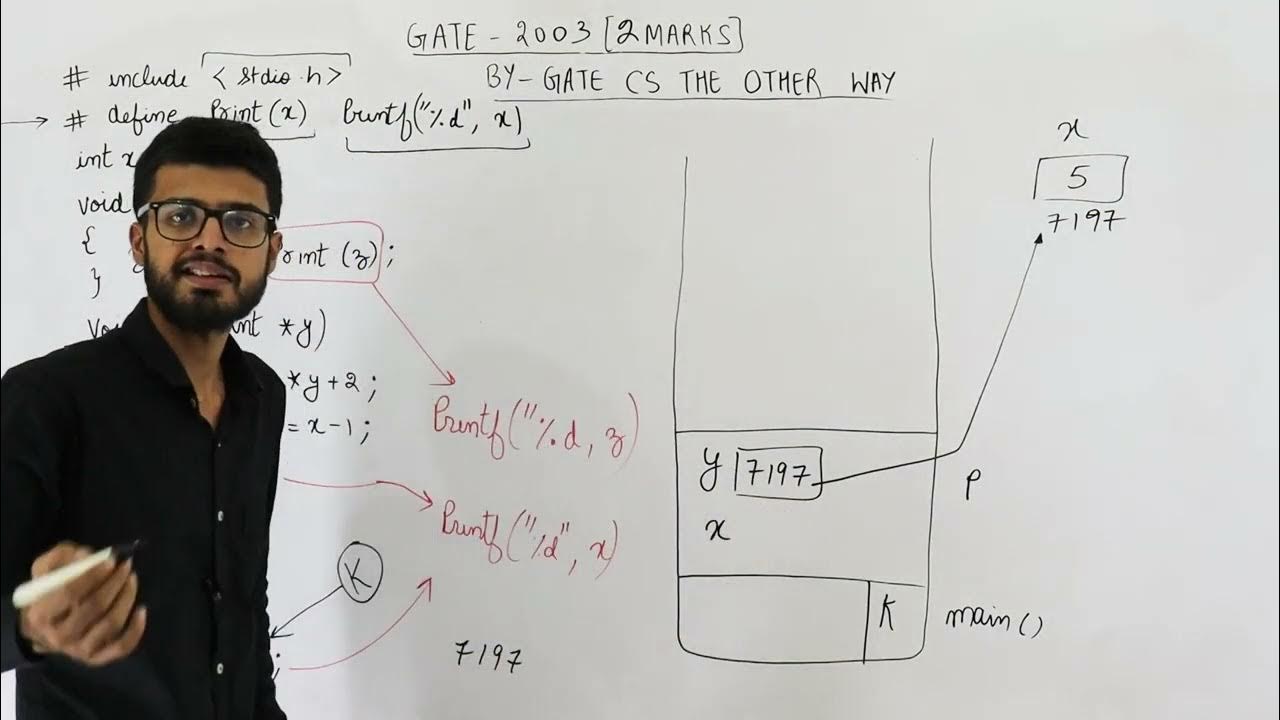 GATE - 2003 [2 MARKS]
BY - GATE CS THE OTHER WAY
# include <stdio.h>
# define Print(x) Printf("%d", x)
int x
void
{
rint (z);
}
int *y)
*y+2;
= x-1;
Printf("%d, z)
Printf("%d", x)
K
;
7197
x
5
7197
y 7197
x
P
K
main()